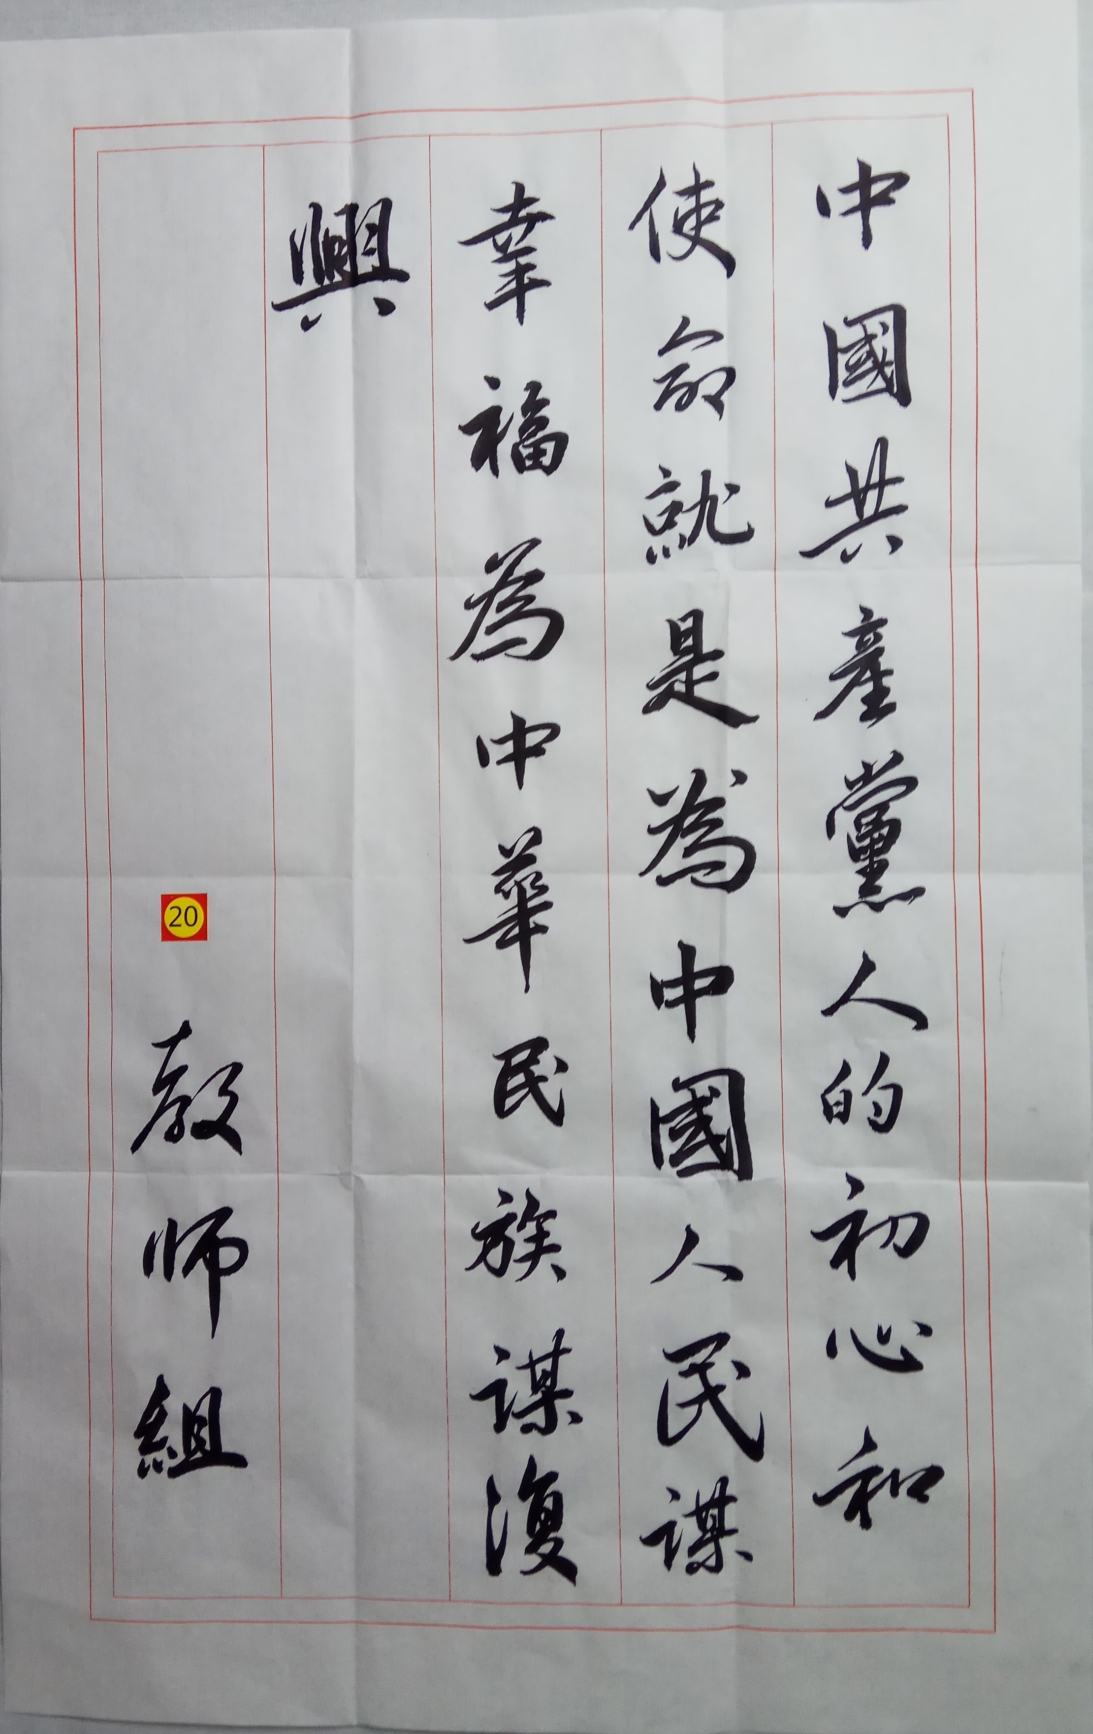 中國共產黨人的初心和
使命就是為中國人民謀
幸福為中華民族謀復
興
20
教师組